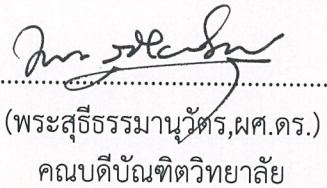 (พระสุธีธรรมานุวัตร,ผศ.ดร.)
คณบดีบัณฑิตวิทยาลัย